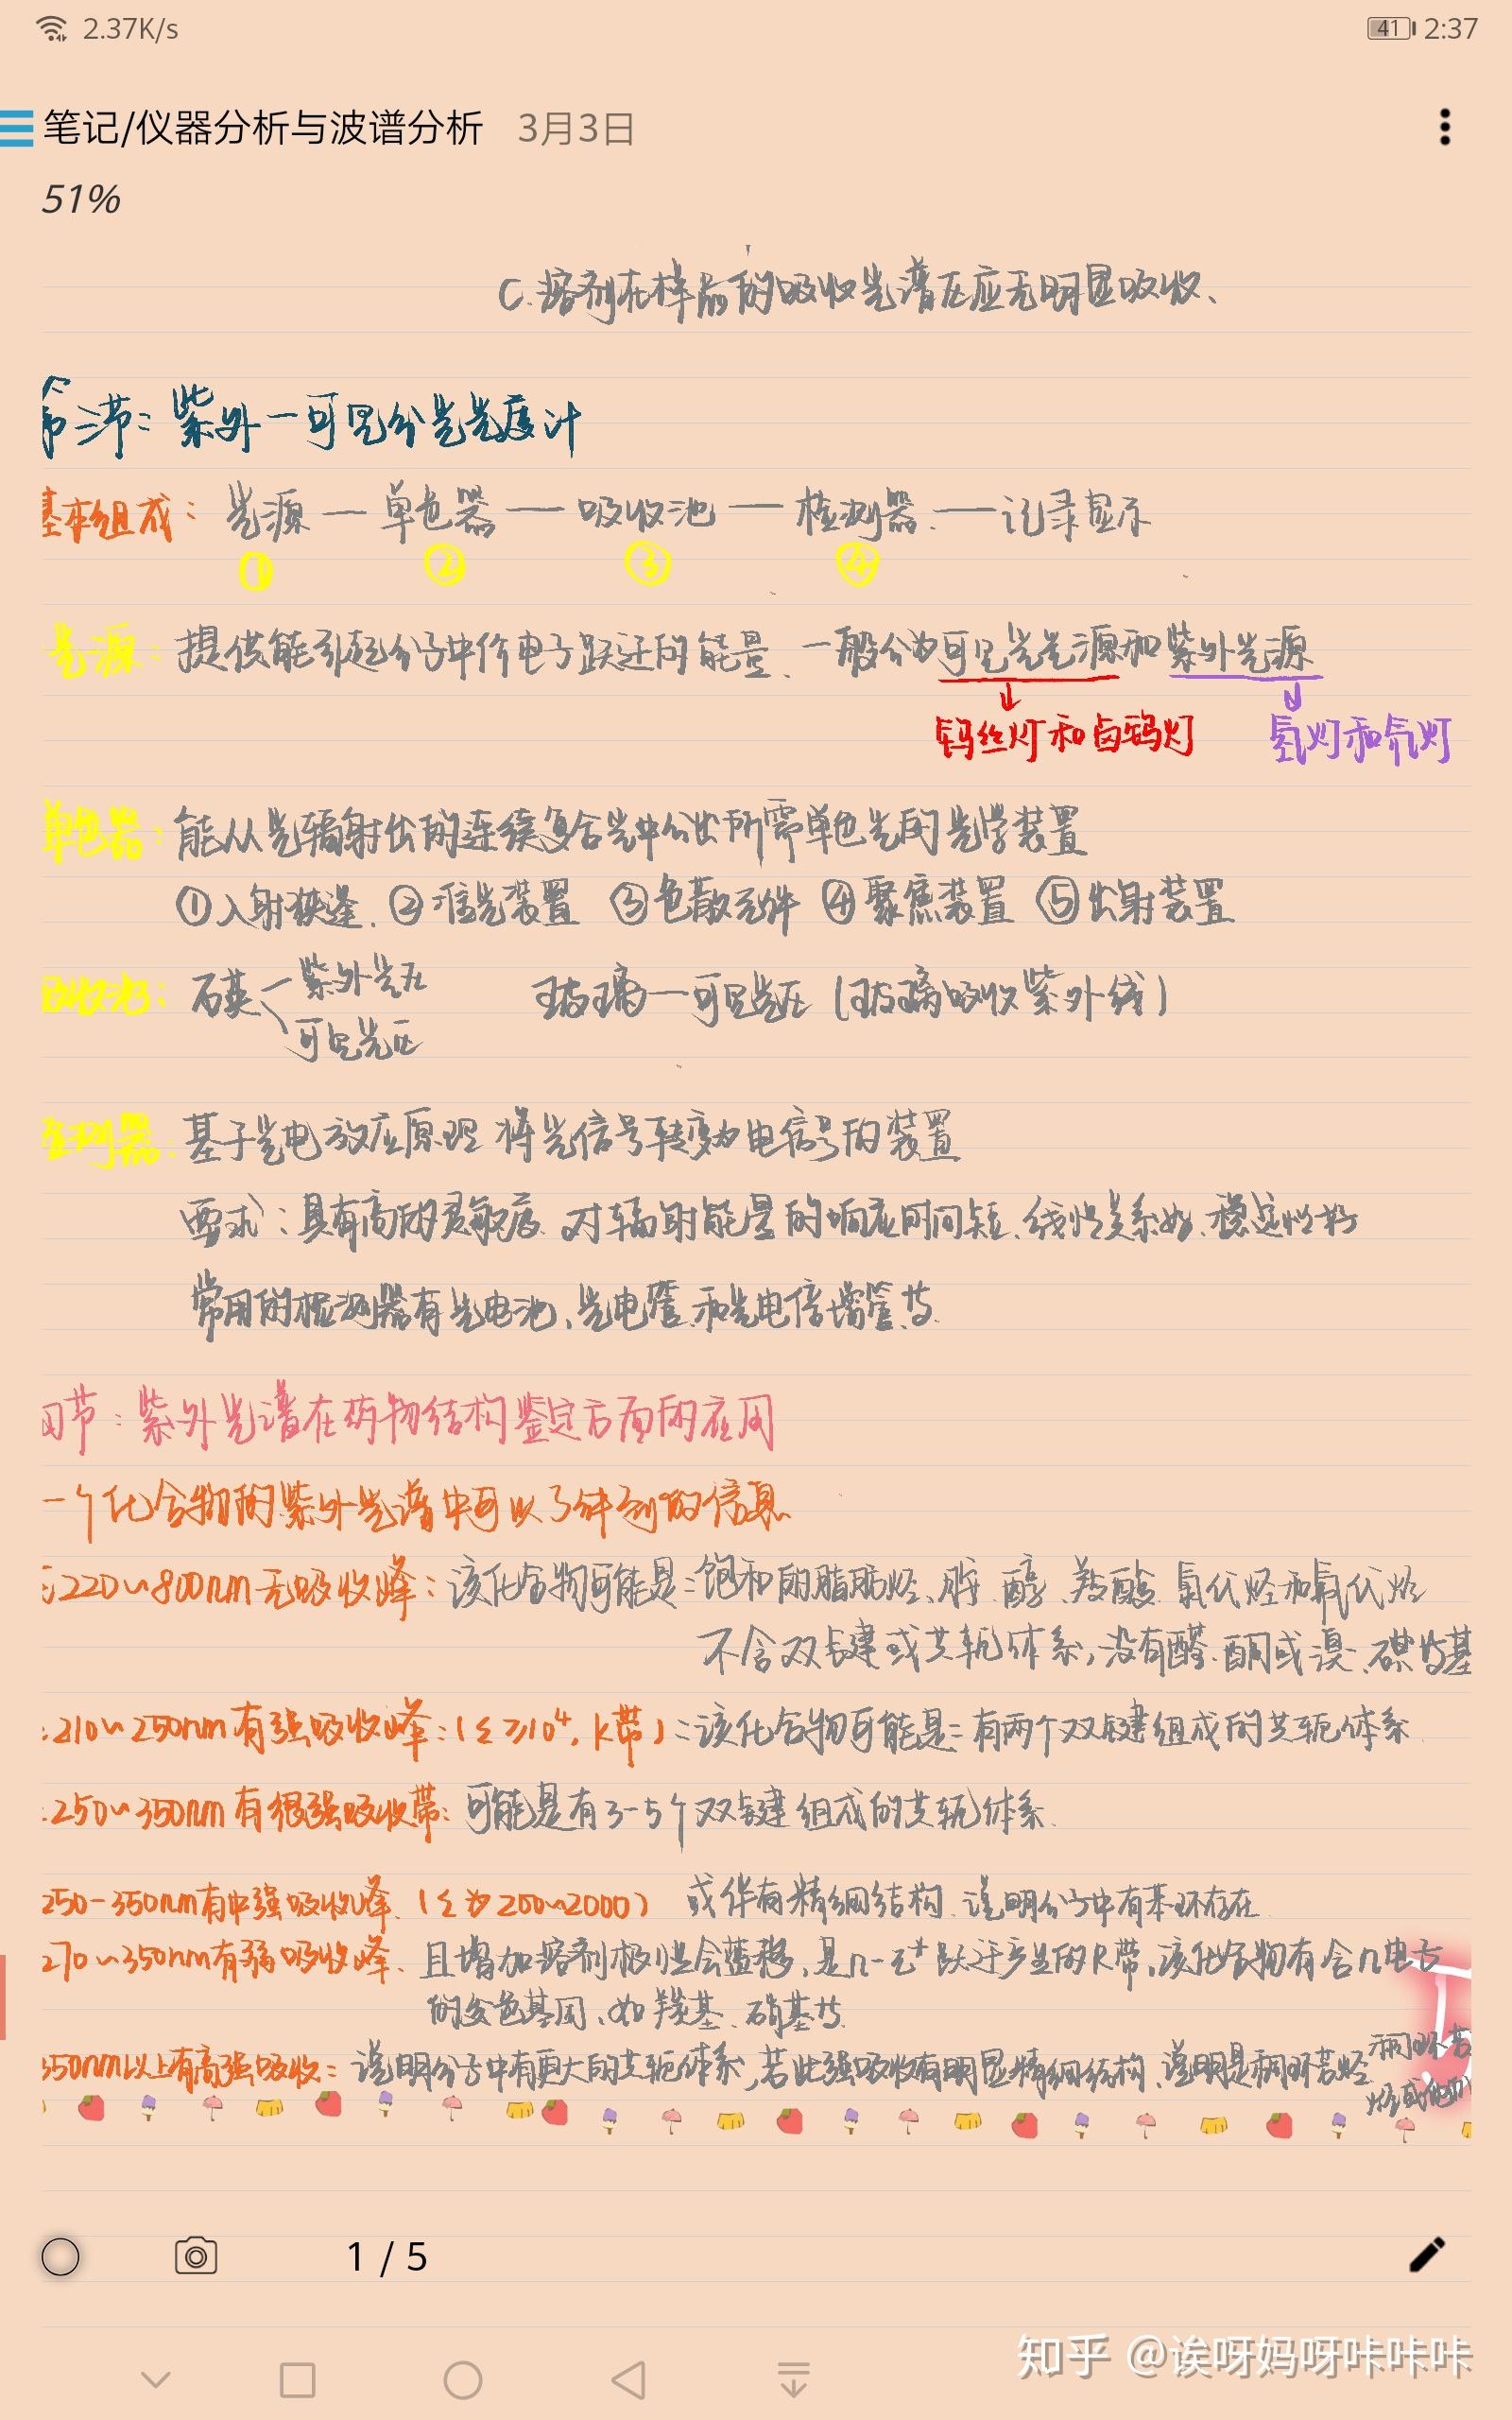 2.37K/s 41 2:37
笔记/仪器分析与波谱分析 3月3日
51%
C.溶剂在样品的吸收光谱区应无明显吸收、
三节：紫外一可见分光光度计
基本组成：光源一单色器一吸收池一检测器.一记录显示
① ② ③ ④
光源：提供能引起分子中价电子跃迁的能量、一般分为可见光光源和紫外光源
钨丝灯和卤钨灯 氢灯和氘灯
单色器：能从光辐射出的连续复合光中分出所需单色光的光学装置
①入射狭逢.②准光装置 ③色散元件 ④聚焦装置 ⑤出射装置
吸收池：石英 紫外光区 玻璃一可见光区（玻璃吸收紫外线）
可见光区
检测器.基于光电效应原理 将光信号转变为电信号的装置
要求：具有高的灵敏度.对辐射能量的响应时间短.线性关系好.稳定性好
常用的检测器有光电池、光电管和光电倍增管等.
四节：紫外光谱在药物结构鉴定方面的应用
一个化合物的紫外光谱中可以了解到的信息
220~800nm无吸收峰：该化合物可能是：饱和的脂肪烃、胺.醇.羧酸.氯代烃和氟代烃
不含双键或共轭体系,没有醛.酮或溴.碘等基
210~250nm有强吸收峰：(ε≥10⁴, K带)：该化合物可能是：有两个双键组成的共轭体系
250~350nm有很强吸收带：可能是有3-5个双键组成的共轭体系.
250-350nm有中强吸收峰.(ε为200~2000) 或伴有精细结构.说明分子中有苯环存在.
270~350nm有弱吸收峰.且增加溶剂极性会蓝移,是n-π*跃迁产生的R带,该化合物有含n电子
的发色基团、如羰基.硝基等.
350nm以上有高强吸收：说明分子中有更大的共轭体系,若此强吸收有明显精细结构、说明是稠环芳烃
稠环芳
烃或他的
1 / 5
知乎 @诶呀妈呀咔咔咔